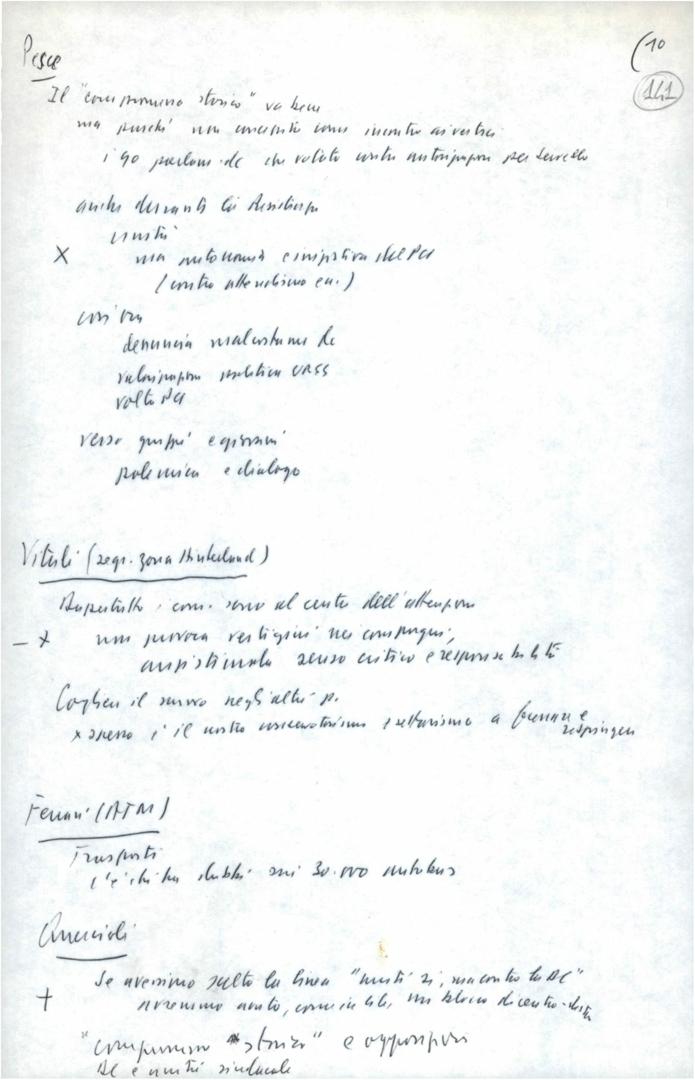 (10
141
Pesce
Il "compromesso storico" va bene
ma purché non concepito come incontro ai vertici
i 90 parlam. dc che votato contro autorizzazione per Servello
anche durante la Resistenza
unità
X ma autonomia e iniziativa del PCI
(contro attendismo ecc.)
così ora
denuncia malcostume Dc
valorizzazione politica URSS
volto PCI
verso gruppi e giovani
polemica e dialogo
Vitali (segr. zona Hinterland)
Dappertutto i com. sono al centro dell'attenzione
– x non provoca vertigini nei compagni,
anzi stimola senso critico e responsabilità
Cogliere il nuovo negli altri p.
x spesso è il nostro conservatorismo e settarismo a frenare e
respingere
Ferrari (ATM)
Trasporti
c'è chi ha dubbi sui 30.000 autobus
Quercioli
Se avessimo scelto la linea "unità sì, ma contro la DC"
+ avremmo avuto, come in Cile, un blocco di centro-destra
"compromesso storico" e opposizione
DC e unità sindacale